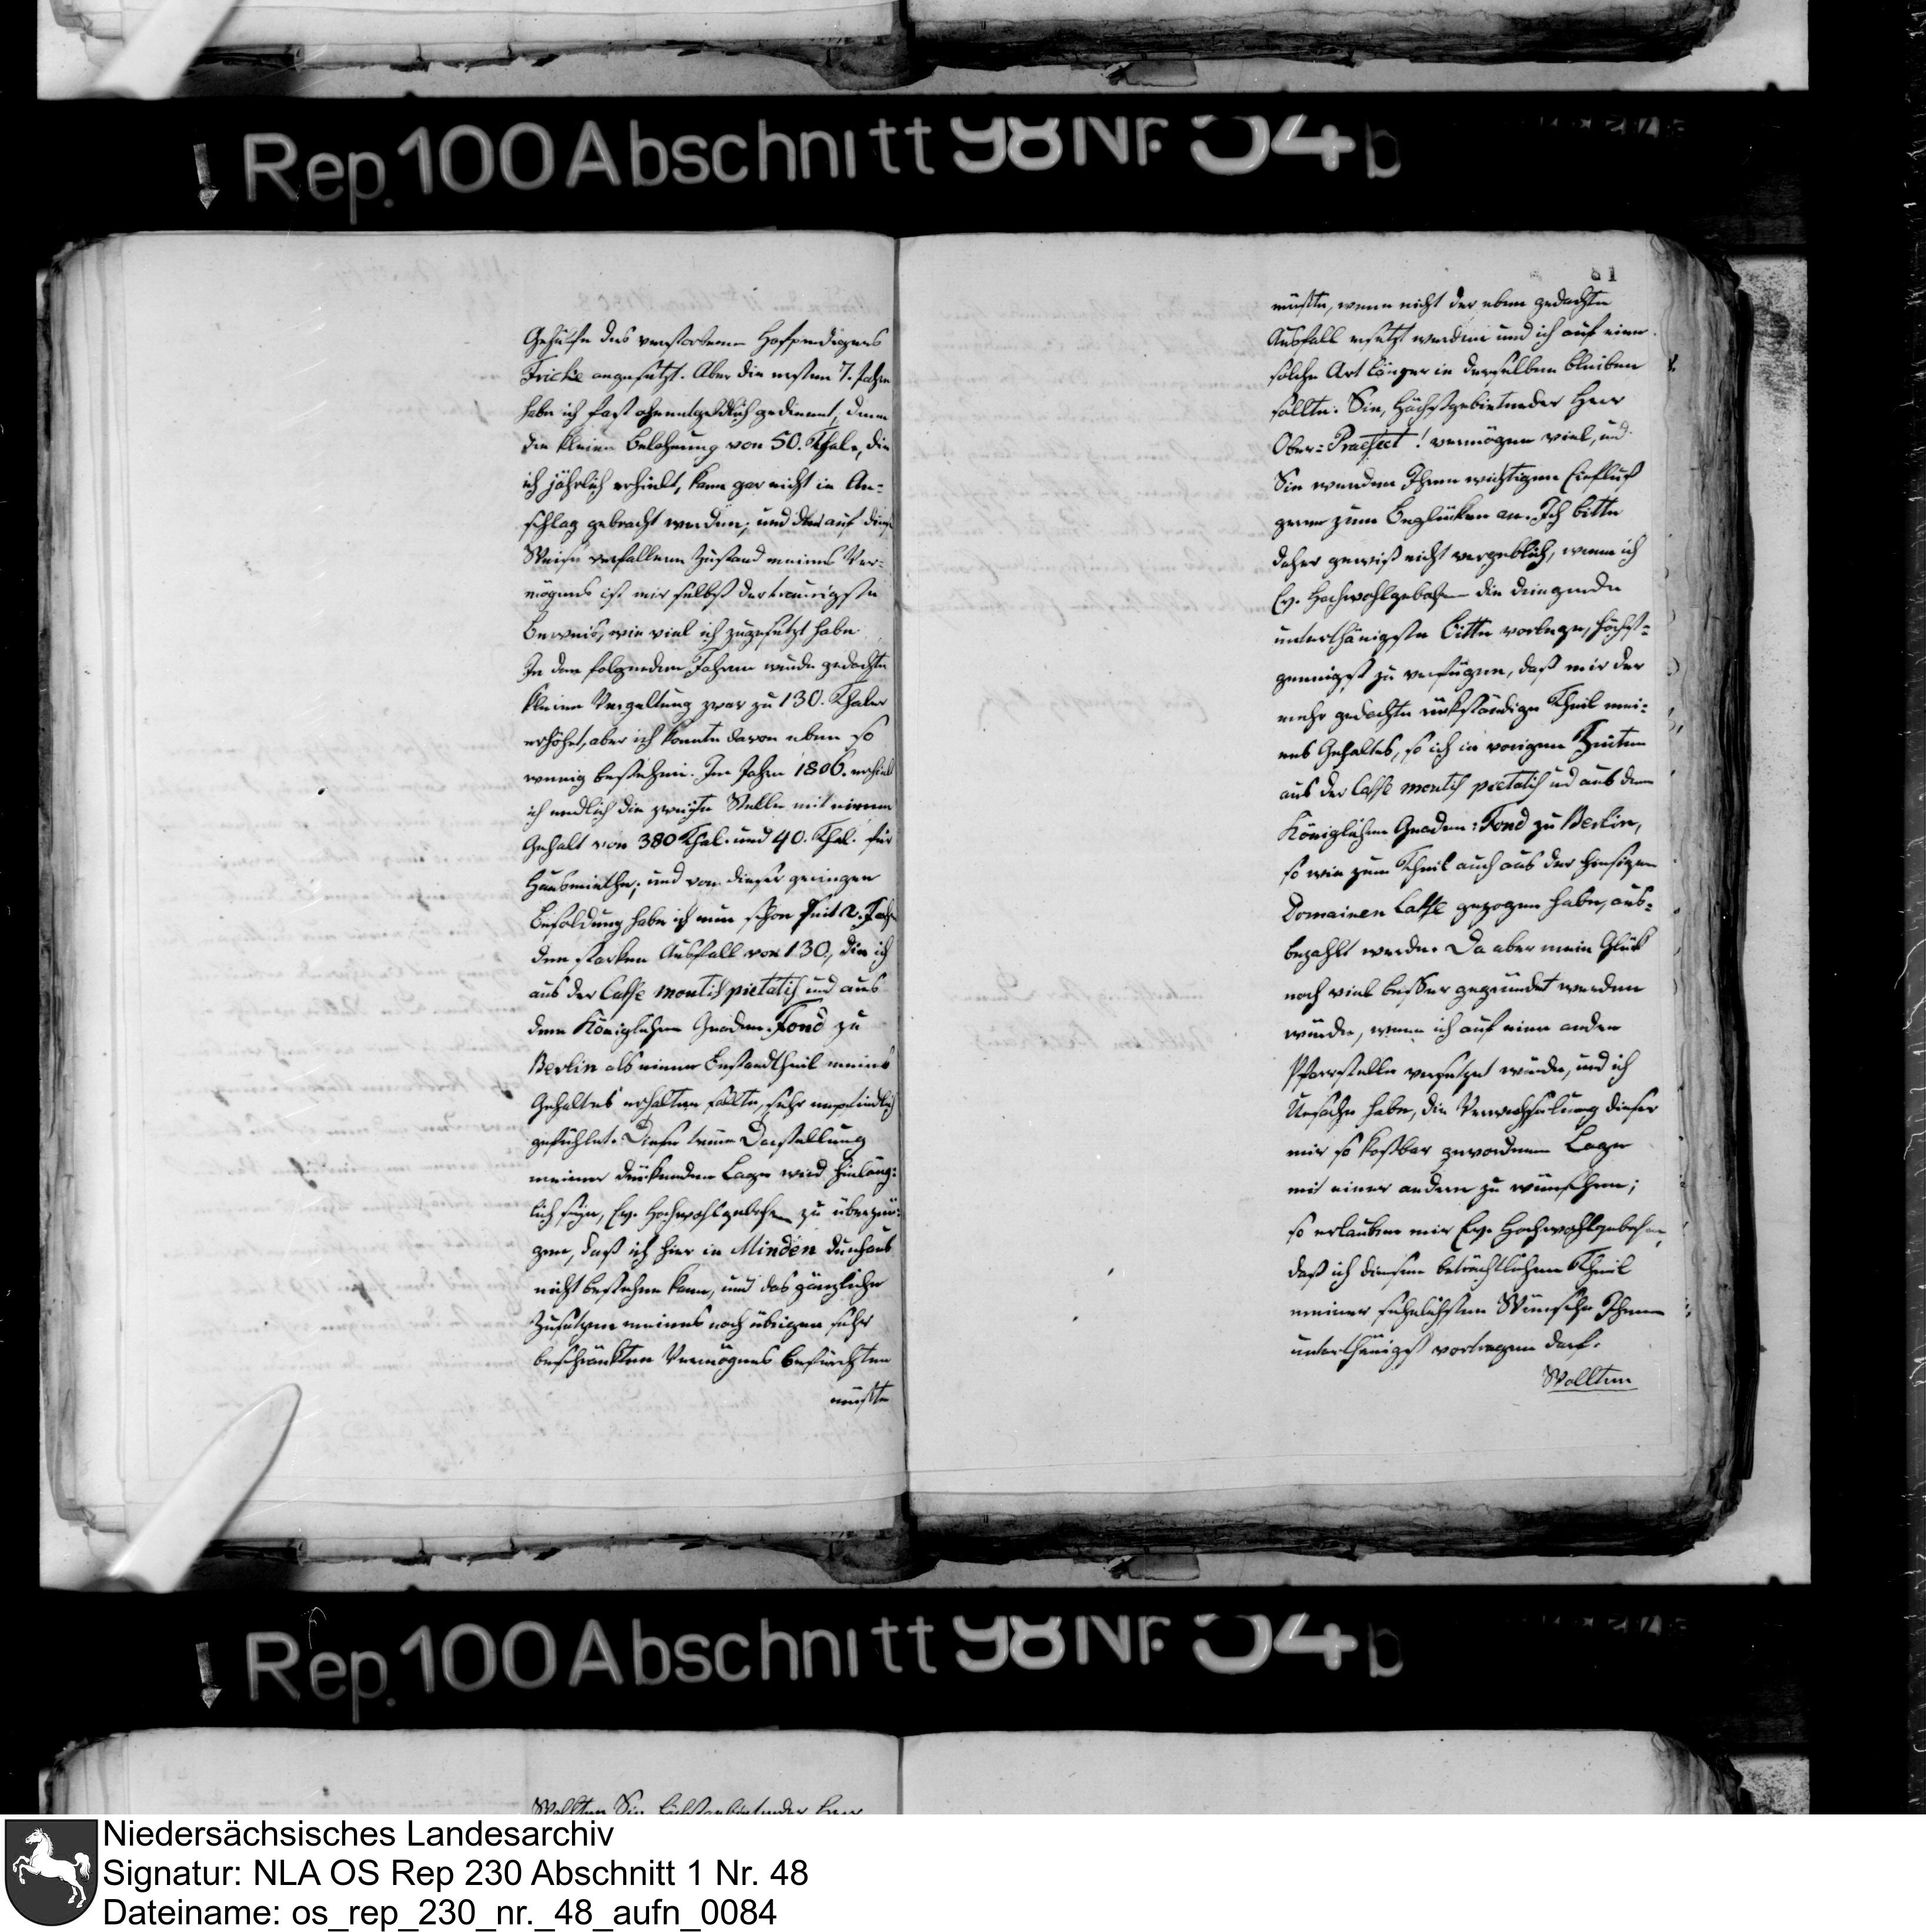 Rep. 100 Abschnitt 98 Nr. 54 b
Gehülfe des verstorbenen Hofpredigers
Fricke angesetzt. Aber die ersten 7. Jahre
habe ich fast ohnentgeldlich gedienet, denn
die kleine Belohnung von 50. Thaler, die
ich jährlich erhielt, kann gar nicht in An-
schlag gebracht werden; und der auf diese
Weise verfallene Zustand meines Ver-
mögens ist mir selbst der traurigste
Beweis, wie viel ich zugesetzt habe.
In den folgenden Jahren wurde gedachte
kleine Vergeltung zwar zu 130. Thaler
erhöhet, aber ich konnte davon eben so
wenig bestehen. Im Jahre 1806. erhielt
ich endlich die zweite Stelle mit einem
Gehalt von 380 Thal. und 40. Thal. für
Hausmiethe; und von dieser geringen
Besoldung habe ich nun schon seit 2. Jahr
den starken Ausfall von 130, die ich
aus der Casse montis pietatis und aus
dem Königlichen Gnaden-Fond zu
Berlin als einen Bestandtheil meines
Gehaltes erhalten sollte, sehr empfindlich
gefühlet. Diese treue Darstellung
meiner drükenden Lage wird hinläng-
lich seyn, Ew. Hochwohlgebohren zu überzeu-
gen, daß ich hier in Minden durchaus
nicht bestehen kann, und das gänzliche
Zusetzen meines noch übrigen sehr
beschränkten Vermögens befürchten
müßte
81
müßte, wenn nicht der eben gedachte
Ausfall ersetzt werden und ich auf eine
solche Art länger in derselben bleiben
sollte. Sie, Höchstgebietender Herr
Ober-Praefect! vermögen viel, und
Sie wenden Ihren wichtigen Einfluß
gerne zum Beglücken an. Ich bitte
daher gewiß nicht vergeblich, wenn ich
Ew. Hochwohlgebohren die dringende
unterthänigste Bitte vorlege, höchst-
geneigst zu verfügen, daß mir der
mehr gedachte rükständige Theil mei-
nes Gehaltes, so ich in vorigen Zeiten
aus der Casse montis pietatis und aus dem
Königlichen Gnaden-Fond zu Berlin,
so wie zum Theil auch aus der hiesigen
Domainen Casse gezogen habe, aus-
bezahlt werde. Da aber mein Glük
noch viel besser gegründet werden
würde, wenn ich auf eine andere
Pfarrstelle versetzet würde, und ich
Ursache habe, die Verwechselung dieser
mir so kostbar gewordenen Lage
mit einer andern zu wünschen;
so erlauben mir Ew. Hochwohlgebohren,
daß ich diesen beträchtlichen Theil
meiner sehnlichsten Wünsche Ihnen
unterthänigst vortragen darf.
Wollten
Rep. 100 Abschnitt 98 Nr. 54 b
Wollten Sie Höchstgebietender Herr
Niedersächsisches Landesarchiv
Signatur: NLA OS Rep 230 Abschnitt 1 Nr. 48
Dateiname: os_rep_230_nr._48_aufn_0084